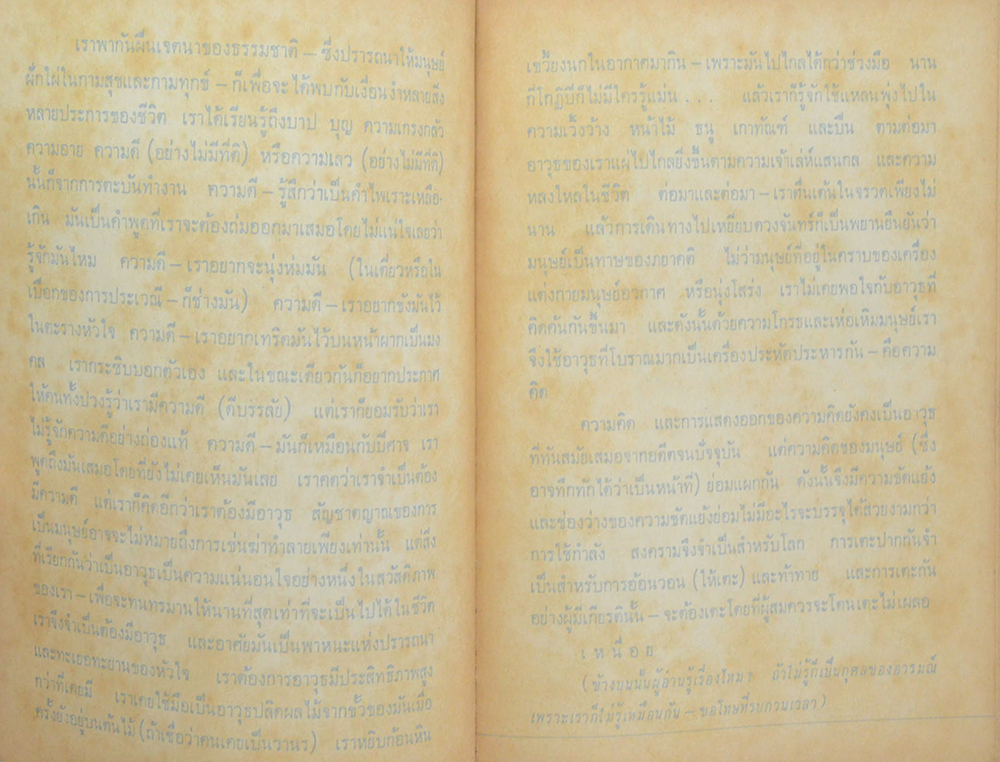 เราพากันฝืนเจตนาของธรรมชาติ – ซึ่งปรารถนาให้มนุษย์
ฝักใฝ่ในกามสุขและกามทุกข์ – ก็เพื่อจะได้พบกับเงื่อนงำหลายสิ่ง
หลายประการของชีวิต เราได้เรียนรู้ถึงบาป บุญ ความเกรงกลัว
ความอาย ความดี (อย่างไม่มีที่ติ) หรือความเลว (อย่างไม่มีที่ติ)
นั้นก็จากการตะบันทำงาน ความดี – รู้สึกว่าเป็นคำไพเราะเหลือ-
เกิน มันเป็นคำพูดที่เราจะต้องถ่มออกมาเสมอโดยไม่แน่ใจเลยว่า
รู้จักมันไหม ความดี – เราอยากจะนุ่งห่มมัน (ในเดี่ยวหรือใน
เปือกของการประเวณี – ก็ช่างมัน) ความดี – เราอยากขังมันไว้
ในตะรางหัวใจ ความดี – เราอยากเทริดมันไว้บนหน้าผากเป็นมง
คล เรากระซิบบอกตัวเอง และในขณะเดียวกันก็อยากประกาศ
ให้คนทั้งปวงรู้ว่าเรามีความดี (ดีบรรลัย) แต่เราก็ยอมรับว่าเรา
ไม่รู้จักความดีอย่างถ่องแท้ ความดี – มันก็เหมือนกับปีศาจ เรา
พูดถึงมันเสมอโดยที่ยังไม่เคยเห็นมันเลย เราคิดว่าเราจำเป็นต้อง
มีความดี แต่เราก็คิดอีกว่าเราต้องมีอาวุธ สัญชาตญาณของการ
เป็นมนุษย์อาจจะไม่หมายถึงการเข่นฆ่าทำลายเพียงเท่านั้น แต่สิ่ง
ที่เรียกกันว่าเป็นอาวุธเป็นความแน่นอนใจอย่างหนึ่งในสวัสดิภาพ
ของเรา – เพื่อจะทนทรมานให้นานที่สุดเท่าที่จะเป็นไปได้ในชีวิต
เราจึงจำเป็นต้องมีอาวุธ และอาศัยมันเป็นพาหนะแห่งปรารถนา
และทะเยอทะยานของหัวใจ เราต้องการอาวุธมีประสิทธิภาพสูง
กว่าที่เคยมี เราเคยใช้มือเป็นอาวุธปลิดผลไม้จากขั้วของมันเมื่อ
ครั้งยังอยู่บนต้นไม้ (ถ้าเชื่อว่าคนเคยเป็นวานร) เราหยิบก้อนหิน
เขวี้ยงนกในอากาศมากิน – เพราะมันไปไกลได้กว่าช่วงมือ นาน
กี่โกฏิปีก็ไม่มีใครรู้แม่น . . . แล้วเราก็รู้จักใช้แหลนพุ่งไปใน
ความเวิ้งว้าง หน้าไม้ ธนู เกาทัณฑ์ และปืน ตามต่อมา
อาวุธของเราแผ่ไปไกลยิ่งขึ้นตามความเจ้าเล่ห์แสนกล และความ
หลงใหลในชีวิต ต่อมาและต่อมา – เราตื่นเต้นในจรวดเพียงไม่
นาน แล้วการเดินทางไปเหยียบดวงจันทร์ก็เป็นพยานยืนยันว่า
มนุษย์เป็นทาษของภยาคติ ไม่ว่ามนุษย์ที่อยู่ในคราบของเครื่อง
แต่งกายมนุษย์อวกาศ หรือนุ่งโสร่ง เราไม่เคยพอใจกับอาวุธที่
คิดค้นกันขึ้นมา และดังนั้นด้วยความโกรธและเห่อเหิมมนุษย์เรา
จึงใช้อาวุธที่โบราณมากเป็นเครื่องประหัตประหารกัน – คือความ
คิด
ความคิด และการแสดงออกของความคิดยังคงเป็นอาวุธ
ที่ทันสมัยเสมอจากอดีตจนปัจจุบัน แต่ความคิดของมนุษย์ (ซึ่ง
อาจทึกทักได้ว่าเป็นหน้าที่) ย่อมแผกกัน ดังนั้นจึงมีความขัดแย้ง
และช่องว่างของความขัดแย้งย่อมไม่มีอะไรจะบรรจุได้สวยงามกว่า
การใช้กำลัง สงครามจึงจำเป็นสำหรับโลก การเตะปากกันจำ
เป็นสำหรับการอ้อนวอน (ให้เตะ) และท้าทาย และการเตะกัน
อย่างผู้มีเกียรตินั้น – จะต้องเตะโดยที่ผู้สมควรจะโดนเตะไม่เผลอ
เ ห นื่ อ ย
(ข้างบนนั้นผู้อ่านรู้เรื่องไหม? ถ้าไม่รู้ก็เป็นกุศลของอารมณ์
เพราะเราก็ไม่รู้เหมือนกัน – ขอโทษที่รบกวนเวลา)